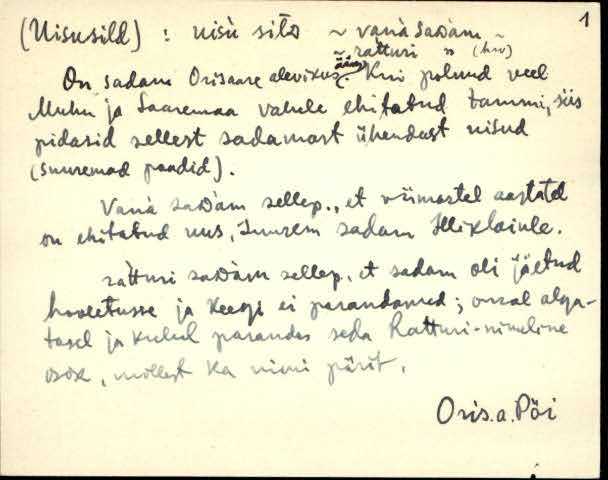 1
(Uisusild) : uisù silD ~ vanà saDàm ~
~ ratturi " (hrv)
On sadam Orissaare alevikus ääres. Kui polnud veel
Muhu ja Saaremaa vahele ehitatud tammi, siis
pidasid sellest sadamast ühendust uisud
(suuremad paadid).
Vanà saDàm sellep., et viimastel aastatel
on ehitatud uus, suurem sadam Illiklaiule.
rátturi saDàm sellep. et sadam oli jäetud
hooletusse ja keegi ei parandanud; omal alga-
tusel ja kulul parandas seda Ratturi-nimeline
isik, millest ka nimi pärit.
Oris.a. Pöi